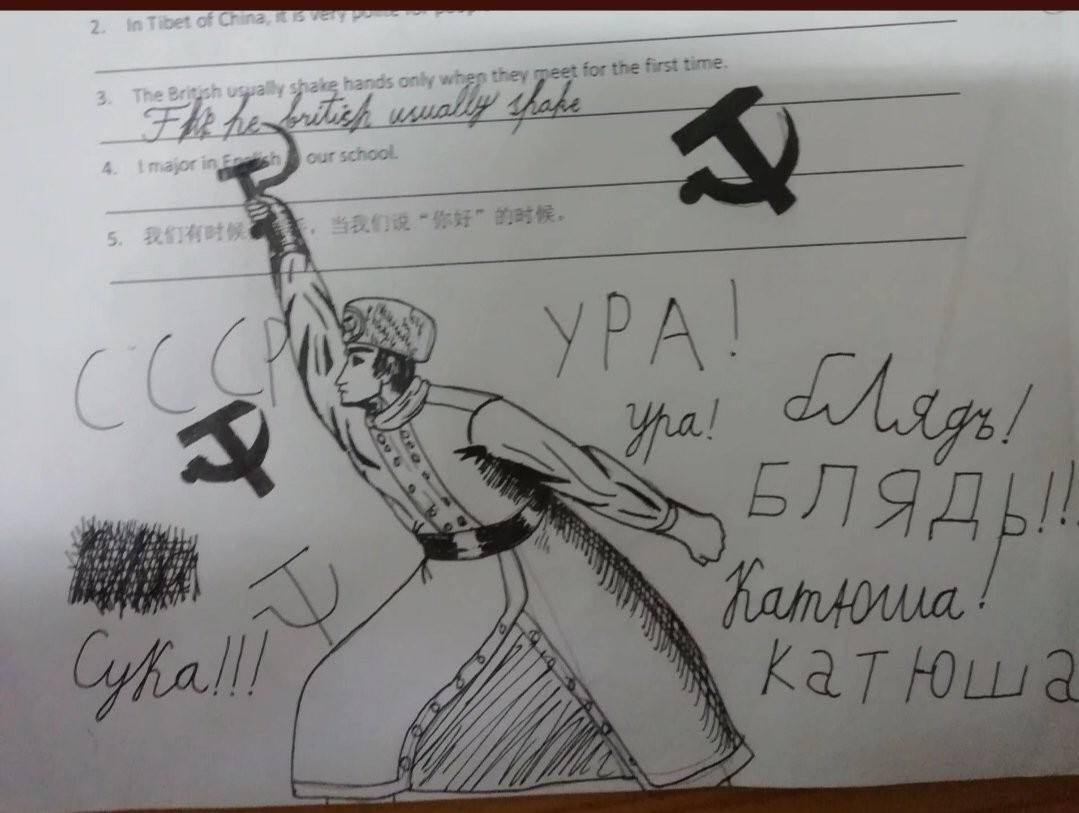 2. In Tibet of China, it is very polite for
3. The British usually shake hands only when they meet for the first time.
he british usually shake
4. I major in English our school.
5. 我们有时候 ，当我们说“你好”的时候。
СССР
УРА!
ура!
бЛядь!
БЛЯДЬ!!!
Катюша!
Сука!!!
КАТЮША